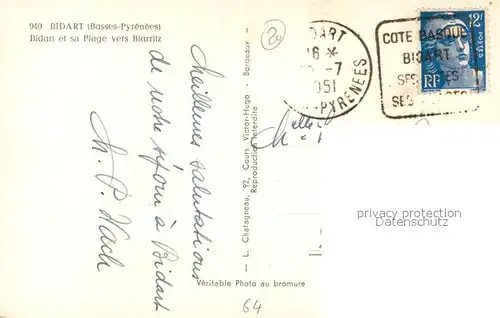 940 BIDART (Basses-Pyrénées)
Bidart et sa Plage vers Biarritz
Meilleures salutations
de notre séjour à Bidart
M. P.
L. Chatagneau, 92, Cours Victor-Hugo - Bordeaux -
Reproduction interdite
Véritable Photo au bromure
BIDART
16 *
-7
1951
-PYRENEES
COTE BASQUE
BIDART
SES
SES
12F
POSTES
RF
privacy protection
Datenschutz
64